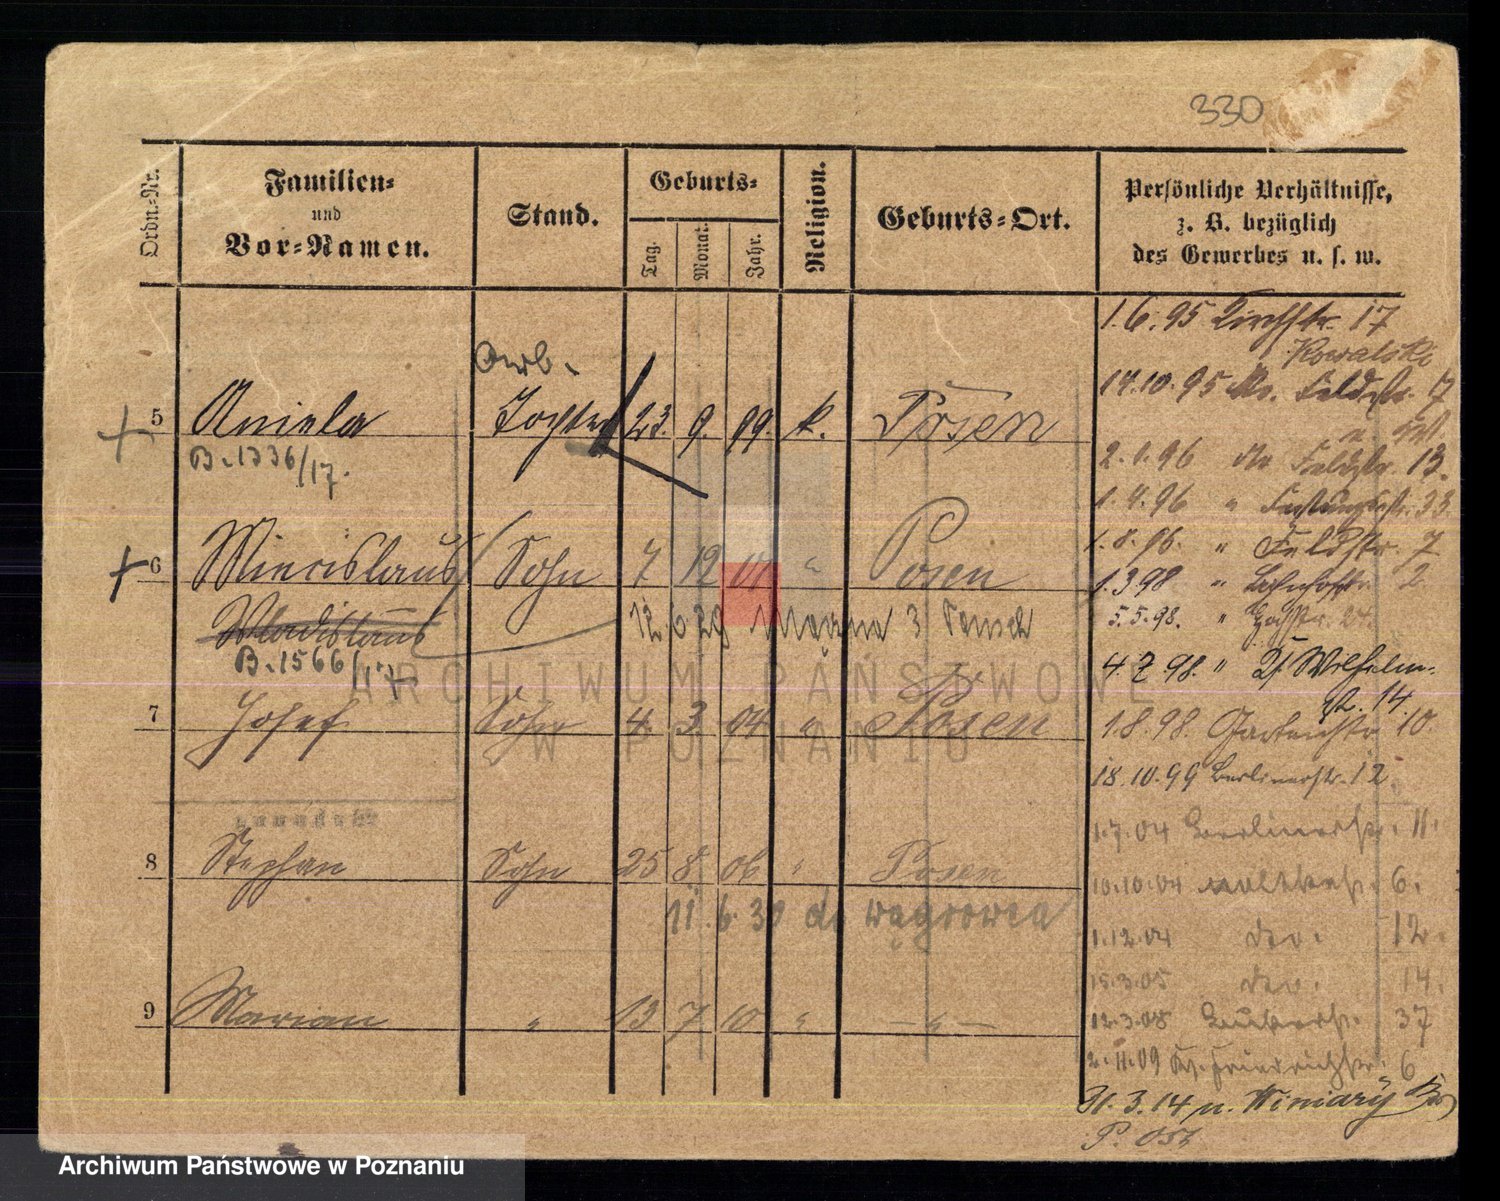 330
Ordn.-Nr.
Familien=
und
Vor=Namen.
Stand.
Geburts=
Tag.
Monat.
Jahr.
Religion.
Geburts=Ort.
Persönliche Verhältnisse,
z. B. bezüglich
des Gewerbes u. s. w.
Arb.
5 Aniela Tochter 23. 9. 99. k. Posen
B. 1336/17.
6 Miecislaus Sohn 7 12 01 " Posen
Wladislaus
12 6 29 3
B. 1566/17
7 Josef Sohn 4. 3. 04 " Posen
8 Stephan Sohn 25 8 06 " Posen
11. 6. 30 do Wągrowca
9 Marian " 13 7 10 " — " —
1.6.95 Kirchstr. 17
Kowalski
14.10.95 Feldstr. 7
2.1.96 Feldstr. 13.
1.4.96 " Festungsstr. 33.
1.8.96. " Feldstr. 7
1.3.98 " Bahnhofstr. 2
5.5.98. "
4.7.98. " Wilhelm-
str. 14
1.8.98. Gartenstr. 10.
18.10.99 Berlinerstr. 12.
1.7.04 Berlinerstr. 11.
10.10.04 Moltkestr. 6.
1.12.04 do. 12.
15.3.05 do. 14.
12.3.08 37
2.11.09 Friedrichstr. 6
31.3.14 n. Winiary
ARCHIWUM PAŃSTWOWE
W POZNANIU
Archiwum Państwowe w Poznaniu